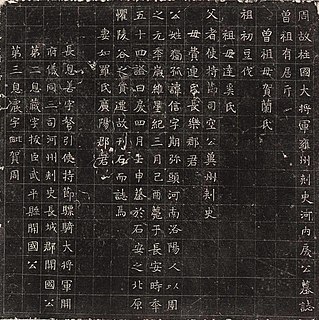 周故柱國大將軍雍州刺史河内戾公墓誌
曾祖有居斤
曾祖母賀蘭氏
祖初豆伐
祖母達奚氏
父者使持節司空公冀州刺史
母費連氏長樂郡君
公姓獨孤諱信字期彌頭河南洛陽人以周
之元季歲維星紀三月己酉薨于長安時季
五十四謚曰戾四月壬申葬於石安之北原
懼陵谷之貿遷故刊石而誌焉
妻如羅氏廣陽郡君
長息善字弩引使持節驃騎大將軍開
府儀同三司河州刺史長城郡開國公
第二息藏字拔臣武平縣開國公
第三息震字毗賀周